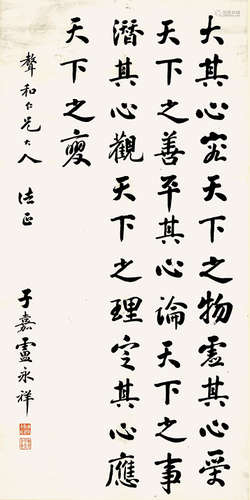 大其心容天下之物虛其心受
天下之善平其心論天下之事
潛其心觀天下之理定其心應
天下之變
聲和仁兄大人 法正
子嘉盧永祥